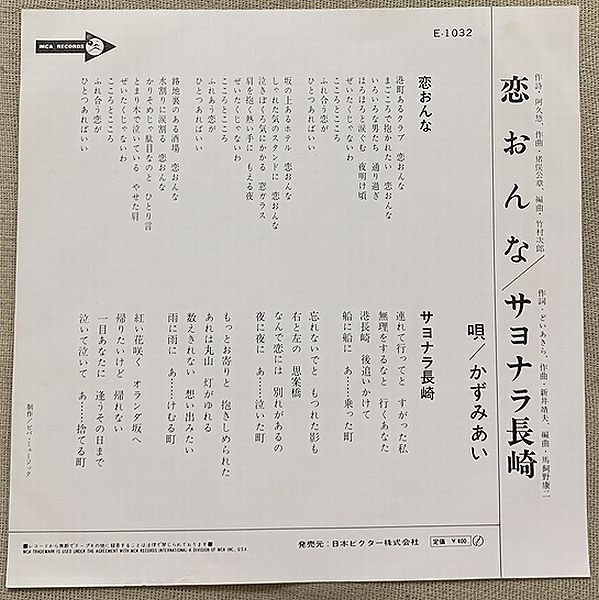 MCA RECORDS
E-1032
作詩・阿久悠、作曲・猪俣公章、編曲・竹村次郎
恋おんな/サヨナラ長崎
作詞・どいあきら、作曲・新井靖夫、編曲・馬飼野康二
唄/かずみあい
恋おんな
港町あるクラブ 恋おんな
まごころで抱かれたい 恋おんな
いろいろな男たち 通り過ぎ
ほろほろと涙ぐむ 夜明け頃
ぜいたくじゃないわ
こころとこころ
ふれ合う恋が
ひとつあればいい
坂の上あるホテル 恋おんな
しゃれた気のスタンドに 恋おんな
泣きぼくろ気にかかる 窓ガラス
肩を抱く熱い手に もえる夜
ぜいたくじゃないわ
こころとこころ
ふれあう恋が
ひとつあればいい
路地裏のある酒場 恋おんな
水割りに涙割る 恋おんな
かりそめじゃ駄目なのと ひとり言
とまり木で泣いている やせた肩
ぜいたくじゃないわ
こころとこころ
ふれ合う恋が
ひとつあればいい
サヨナラ長崎
連れて行ってと すがった私
無理をするなと 行くあなた
港長崎 後追いかけて
船に船に あ……乗った町
忘れないでと もつれた影も
右と左の 思案橋
なんで恋には 別れがあるの
夜に夜に あ……泣いた町
もっとお寄りと 抱きしめられた
あれは丸山 灯がゆれる
数えきれない 想い出みたい
雨に雨に あ……けむる町
紅い花咲く オランダ坂へ
帰りたいけど 帰れない
一目あなたに 逢うその日まで
泣いて泣いて あ……捨てる町
制作/ビバ・ミュージック
■レコードから無断でテープその他に録音することは法律で禁じられております■
MCA TRADEMARK IS USED UNDER THE AGREEMENT WITH MCA RECORDS INTERNATIONAL-A DIVISION OF MCA INC., U.S.A.
発売元:日本ビクター株式会社
定価 ¥400.